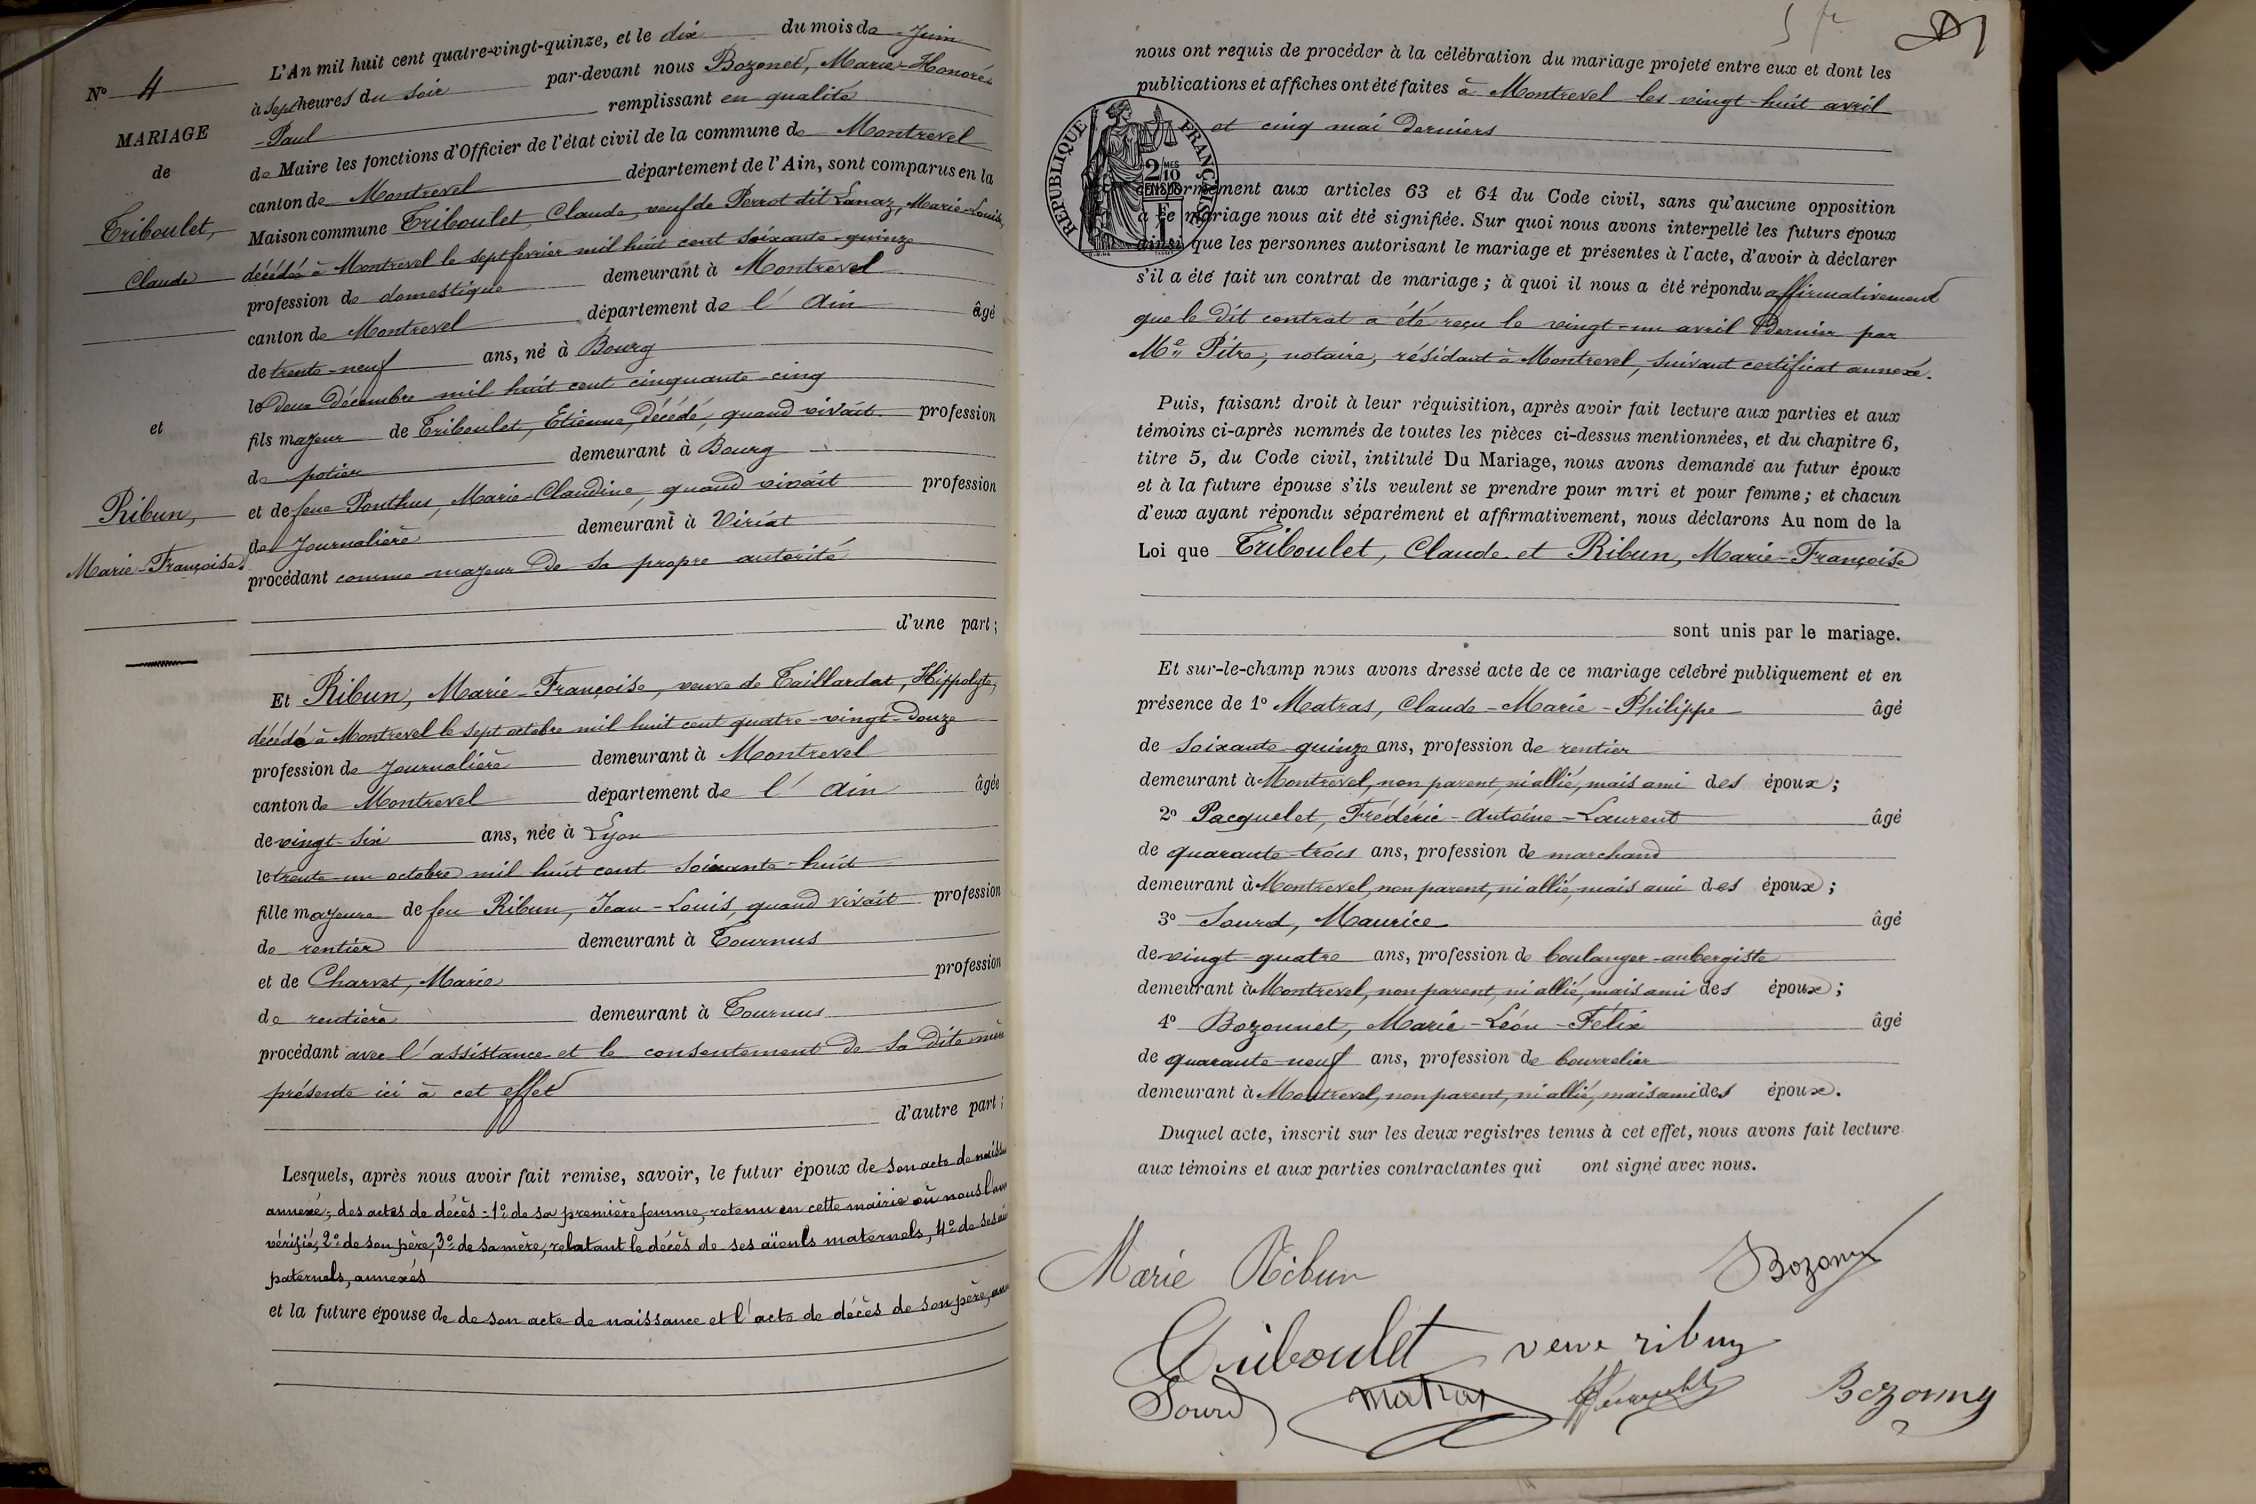 N° 4
MARIAGE
de
Triboulet,
Claude
et
Ribun,
Marie-Françoise.
L'An mil huit cent quatre-vingt-quinze, et le dix du mois de Juin
à sept heures du soir par-devant nous Bozonet, Marie-Honoré-
-Paul remplissant en qualité
de Maire les fonctions d'Officier de l'état civil de la commune de Montrevel
canton de Montrevel département de l'Ain, sont comparus en la
Maison commune Triboulet, Claude, veuf de Perrot dit Lanaz, Marie-Louise,
décédée à Montrevel le sept février mil huit cent soixante-quinze
profession de domestique demeurant à Montrevel
canton de Montrevel département de l'Ain âgé
de trente-neuf ans, né à Bourg
le deux décembre mil huit cent cinquante-cinq
fils majeur de Triboulet, Etienne, décédé, quand vivait profession
de potier demeurant à Bourg
et de feue Ponthus, Marie-Claudine, quand vivait profession
de Journalière demeurant à Viriat
procédant comme majeur de sa propre autorité
d'une part;
Et Ribun, Marie-Françoise, veuve de Taillardat, Hippolyte,
décédé à Montrevel le sept octobre mil huit cent quatre-vingt-douze
profession de Journalière demeurant à Montrevel
canton de Montrevel département de l'Ain âgée
de vingt-six ans, née à Lyon
le trente un octobre mil huit cent soixante-huit
fille majeure de feu Ribun, Jean-Louis, quand vivait profession
de rentier demeurant à Tournus
et de Charvet, Marie profession
de rentière demeurant à Tournus
procédant avec l'assistance et le consentement de sa dite mère
présente ici à cet effet
d'autre part;
Lesquels, après nous avoir fait remise, savoir, le futur époux de son acte de
annexé; des actes de décès - 1° de sa première femme, retenu en cette mairie où nous
vérifié, 2° de son père, 3° de sa mère, relatant le décès de ses aïeuls maternels, 4° de ses
paternels, annexés
et la future épouse de de son acte de naissance et l'acte de décès de son père,
5 fr
nous ont requis de procéder à la célébration du mariage projeté entre eux et dont les
publications et affiches ont été faites à Montrevel les vingt-huit avril
et cinq mai derniers
RÉPUBLIQUE FRANÇAISE
2/10
EN SUS
conformément aux articles 63 et 64 du Code civil, sans qu'aucune opposition
à ce mariage nous ait été signifiée. Sur quoi nous avons interpellé les futurs époux
ainsi que les personnes autorisant le mariage et présentes à l'acte, d'avoir à déclarer
s'il a été fait un contrat de mariage; à quoi il nous a été répondu affirmativement
que le dit contrat a été reçu le vingt-un avril dernier par
Me Pitre, notaire, résidant à Montrevel, suivant certificat annexé.
Puis, faisant droit à leur réquisition, après avoir fait lecture aux parties et aux
témoins ci-après nommés de toutes les pièces ci-dessus mentionnées, et du chapitre 6,
titre 5, du Code civil, intitulé Du Mariage, nous avons demandé au futur époux
et à la future épouse s'ils veulent se prendre pour mari et pour femme; et chacun
d'eux ayant répondu séparément et affirmativement, nous déclarons Au nom de la
Loi que Triboulet, Claude et Ribun, Marie-Françoise
sont unis par le mariage.
Et sur-le-champ nous avons dressé acte de ce mariage célébré publiquement et en
présence de 1° Matras, Claude-Marie-Philippe âgé
de soixante-quinze ans, profession de rentier
demeurant à Montrevel, non parent, ni allié, mais ami des époux;
2° Pacquelet, Frédéric-Antoine-Laurent âgé
de quarante-trois ans, profession de marchand
demeurant à Montrevel, non parent, ni allié, mais ami des époux;
3° Sourd, Maurice âgé
de vingt-quatre ans, profession de boulanger-aubergiste
demeurant à Montrevel, non parent, ni allié, mais ami des époux;
4° Bozonnet, Marie-Léon-Félix âgé
de quarante-neuf ans, profession de bourrelier
demeurant à Montrevel, non parent, ni allié, mais ami des époux.
Duquel acte, inscrit sur les deux registres tenus à cet effet, nous avons fait lecture
aux témoins et aux parties contractantes qui ont signé avec nous.
Marie Ribun
Triboulet veuve ribun
Sourd Matras